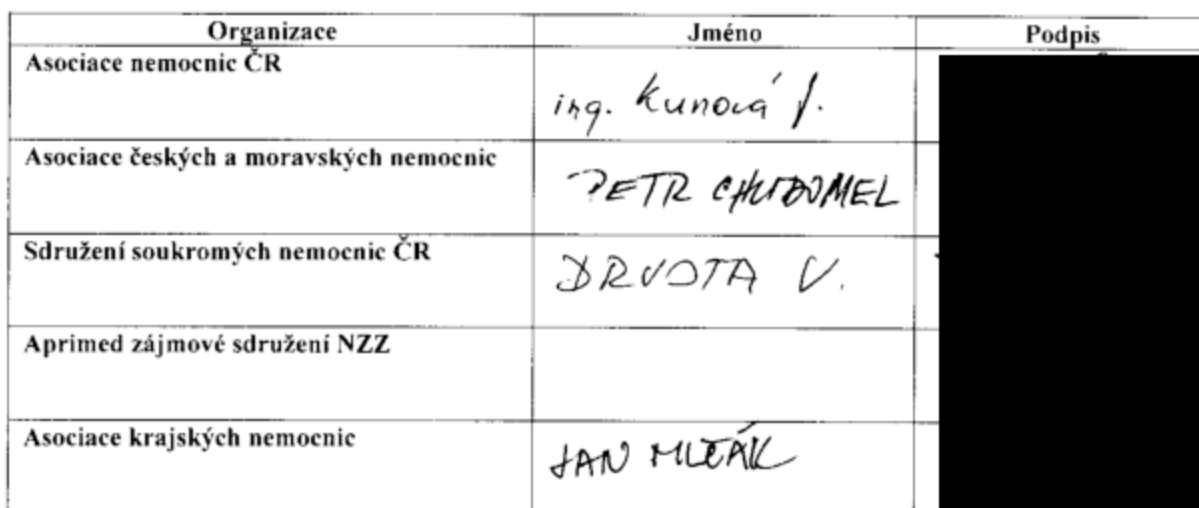 Organizace Jméno Podpis
Asociace nemocnic ČR
ing. Kunová J.
Asociace českých a moravských nemocnic
PETR CHLUBOMEL
Sdružení soukromých nemocnic ČR
DRVOTA V.
Aprimed zájmové sdružení NZZ
Asociace krajských nemocnic
JAN MLČÁK